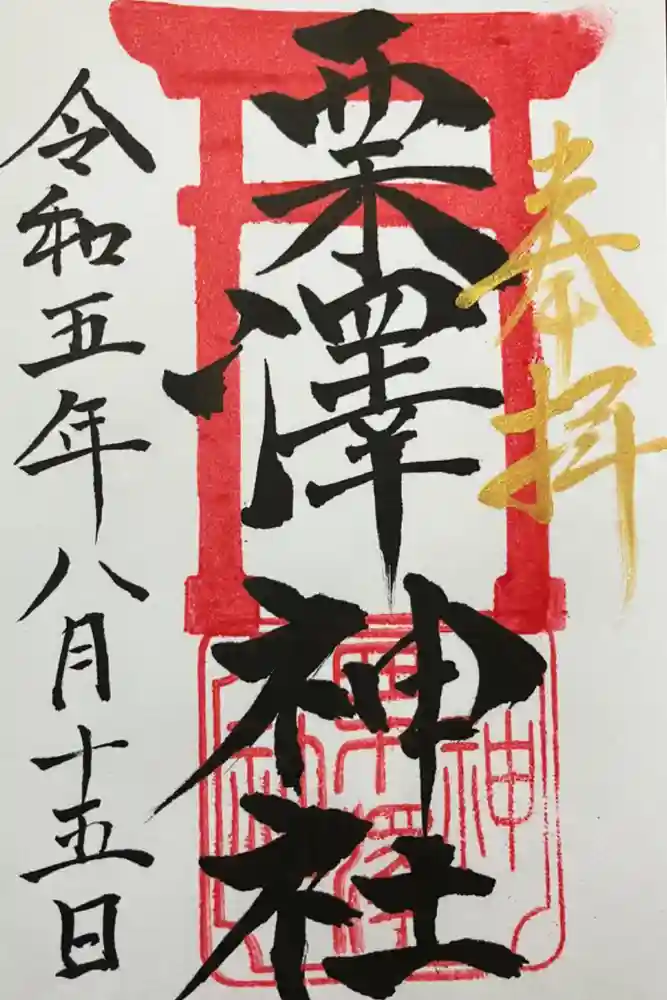 奉拝
粟澤神社
令和五年八月十五日
神
粟澤
社